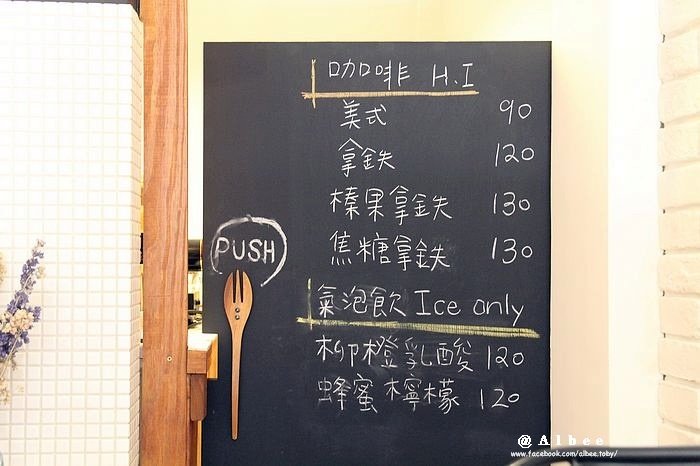 咖啡 H.I
美式 90
拿鉄 120
榛果拿鉄 130
焦糖拿鉄 130
PUSH
氣泡飲 Ice only
柳橙乳酸 120
蜂蜜檸檬 120
@Albee
www.facebook.com/albee.toby/